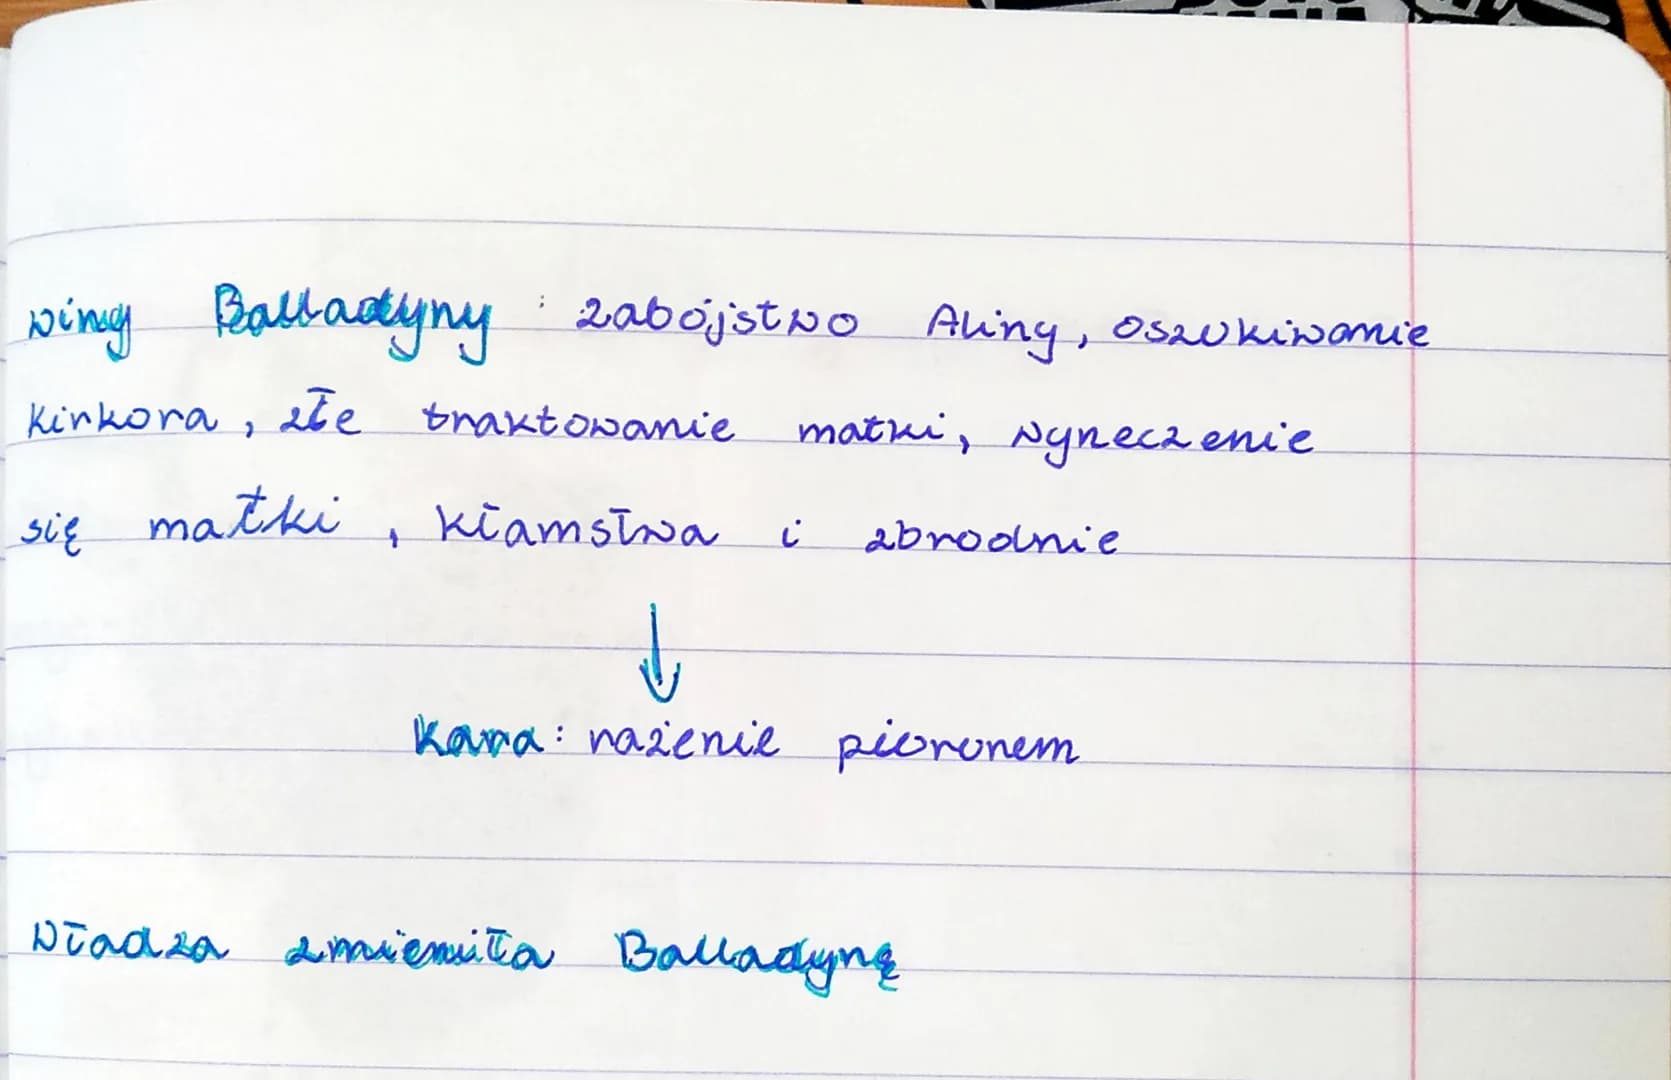 winy Balladyny : zabójstwo Aliny, oszukiwanie
Kirkora, złe traktowanie matki, wyrzeczenie
się matki, kłamstwa i zbrodnie
↓
Kara: rażenie piorunem
Władza zmieniła Balladynę